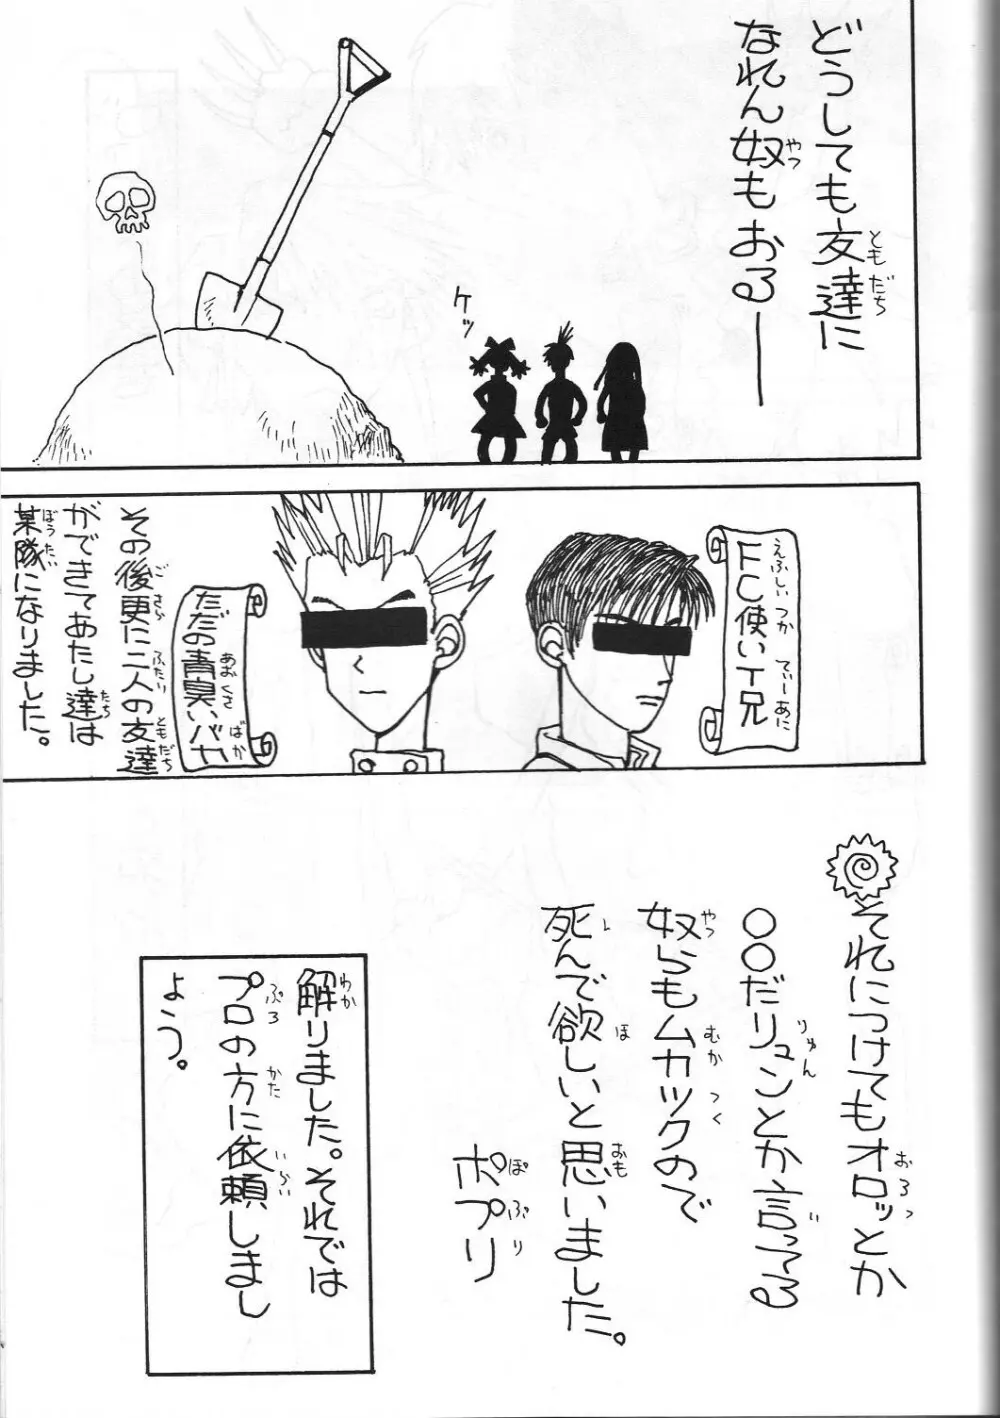 どうしても友達に
なれん奴もおるー
ケッ
FC使いT兄
ただの青臭いバカ
その後更に二人の友達
ができてあたし達は
某隊になりました。
それにつけてもオロッとか
〇〇だリュンとか言ってる
奴らもムカツクので
死んで欲しいと思いました。
ポプリ
解りました。それでは
プロの方に依頼しまし
ょう。